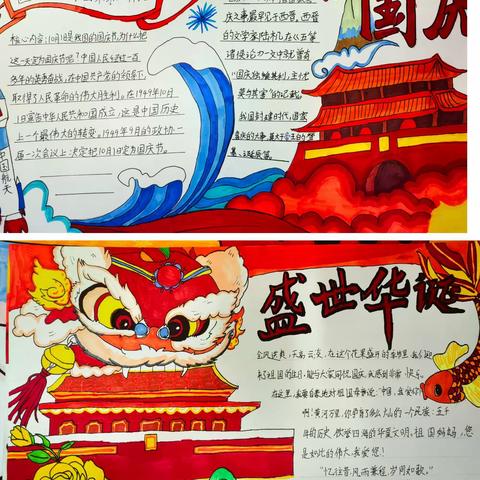 国庆
核心内容:10月1日是我国的国庆节,为什么把
这一天定为国庆节呢?中国人民经过一百
多年的英勇奋战,在中国共产党的领导下,
取得了人民革命的伟大胜利。在1949年10月
1日宣告中华人民共和国成立,这是中国历史
上一个最伟大的转变。1949年9月的政协一
届一次会议上决定把10月1日定为国庆节。
中国航天
庆之事最早见于西晋。西晋
的文学家陆机在《五等
诸侯论》一文中就曾有
“国庆独飨其利,主忧
莫与其害”的记载。
我国封建时代,国家
喜庆的大事,莫大过于帝王的登
基、诞辰等。
盛世华诞
金风送爽,天高云淡,在这个花果盛开的季节里,我们迎
来了祖国的生日,能与大家同悦国庆,我感到非常快乐。
在这里,我要自豪地对祖国母亲说:“中国,我爱你!
啊!黄河万里,你孕育了多么大的一个民族:五千
年的历史,燃望四海的华夏文明,祖国妈妈,您
是如此的伟大,我爱您!
“忆往昔,风雨兼程,岁月如歌。”